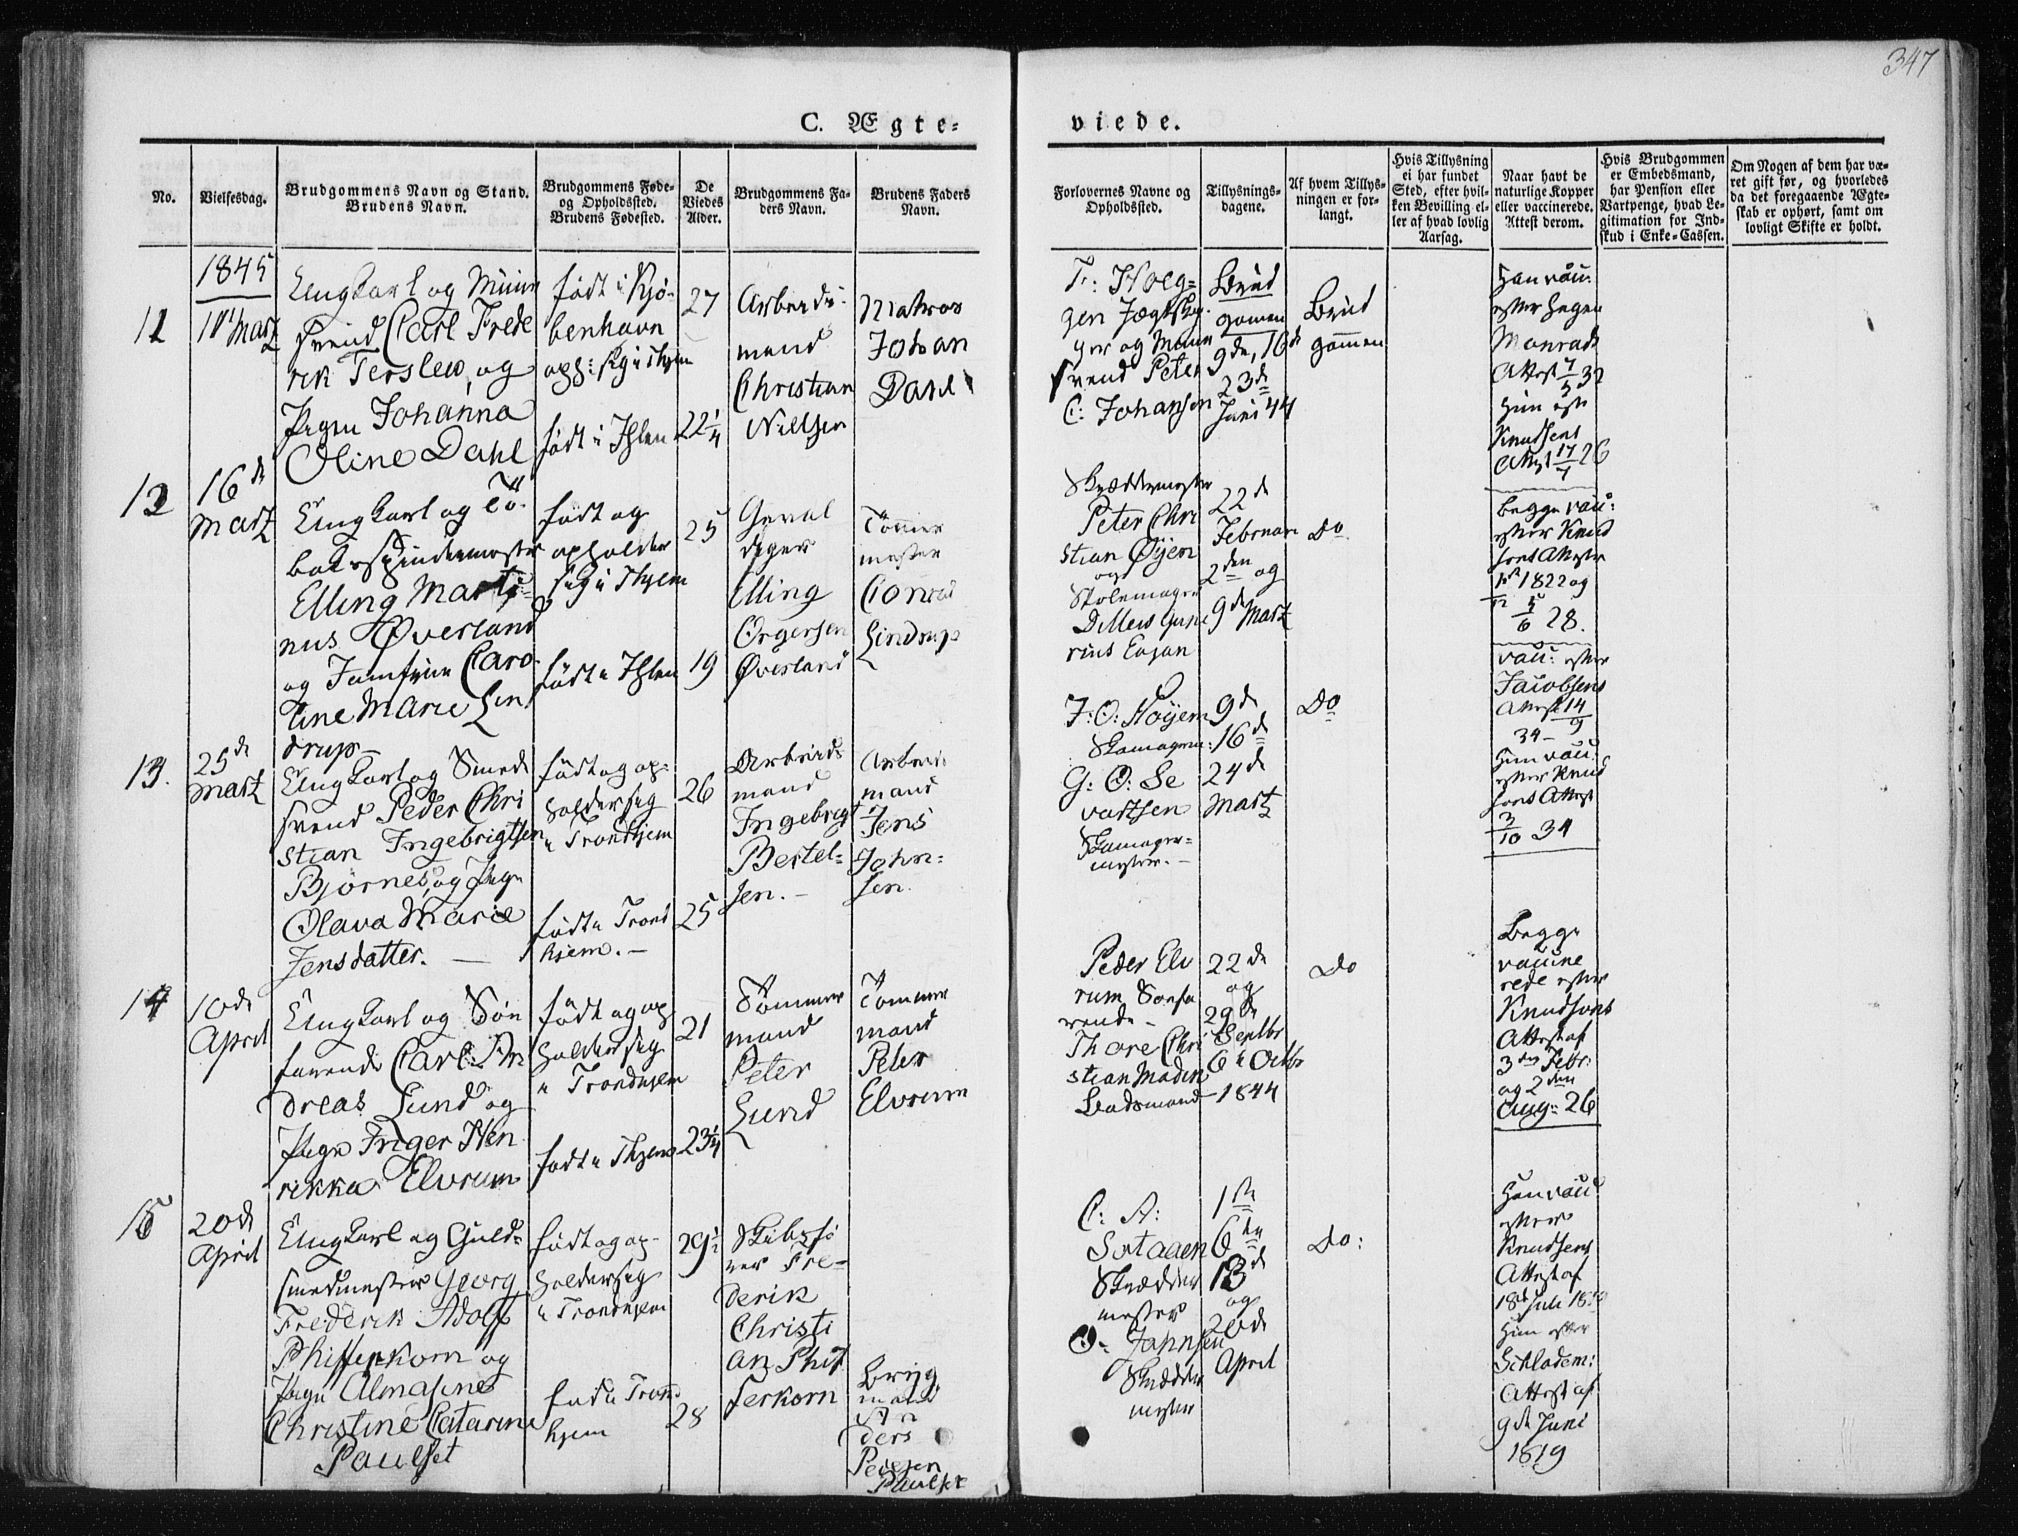 347
C. Ægte=
viede.
No.
Vielsesdag.
Brudgommens Navn og Stand.
Brudens Navn.
Brudgommens Føde-
og Opholdssted.
Brudens Fødested.
De
Viedes
Alder.
Brudgommens Fa-
ders Navn.
Brudens Faders
Navn.
Forlovernes Navne og
Opholdssted.
Tillysnings-
dagene.
Af hvem Tillys-
ningen er for-
langt.
Hvis Tillysning
ei har fundet
Sted, efter hvil-
ken Bevilling el-
ler af hvad lovlig
Aarsag.
Naar havt de
naturlige Kopper
eller vaccinerede.
Attest derom.
Hvis Brudgommen
er Embedsmand,
har Pension eller
Vartpenge, hvad Le-
gitimation for Ind-
skud i Enke-Cassen.
Om Nogen af dem har væ-
ret gift før, og hvorledes
da det foregaaende Ægte-
skab er ophørt, samt om
lovligt Skifte er holdt.
1845
Martz
Ungkarl og Muur
svend Carl Frede
rik Terslew, og
Pigen Johanna
Oline Dahl
født i Kjø-
benhavn
født i Ihlen
27
22 1/4
Arbeids-
mand
Christian
Nielsen
Matros
Johan
Dahl
Peter
C: Johansen
Brud
gomen
9de, 16de
23de
Juni 44
Brud
gomen
Han vaci:
efter
Monrads
Attest 7/5 32
Hun efter
Knudsens
Attest 17/7 26
16de
Martz
Ungkarl og To-
baksspindemester
Elling Marti-
nus Øverland
og Jomfrue Caro-
line Marie Lin
drup
født og
opholder
sig i Thjem
født i Ihlen
25
19
Elling
Orgersen
Øverland
Tømmer
mester
Conrad
Lindrup
Skræddermester
Peter Chri
stian Øyen
og
22de
Februar
2den og
9de Martz
Do
Begge vaci:
efter Knud
sons Attester
1822 og
5/6 28.
13.
25de
Martz
Ungkarl og Smed
svend Peder Chri
stian Ingebrigtsen
Bjørnes, og Pige
Olava Marie
Jensdatter.
født og op-
holder sig
i Trondhjem
født i Trond
hjem.
26
25
Arbeids
mand
Ingebrigt
Bertel-
sen.
Arbeids
mand
Jens
John-
sen.
J: O: Høyem
Skomager:
G: O: Se
vartsen
Skomager-
mester.
9de
16de
24de
Martz
Do
vac: efter
Jacobsens
Attest 14/9
34
Hun vac:
efter Knud
sons Attest
3/10 34
14
10de
April
Ungkarl og Søe
farende Carl An
dreas Lund og
Pige Inger Hen
rikka Elvrum
født og op
holder sig
i Trondhjem
født i Thjem
21
23 1/4
Tømmer
mand
Peter
Lund
Tømmer
mand
Peter
Elvrum
Peder Elv
rum Søefa
rende
Thore Chri
stian Madsen
Baadsmand
22de
og
29de
Septbr
6te Octbr
1844
Do
Begge
vaccine
rede efter
Knudsons
Attest af
3den Febr:
og 2den
Aug: 26
15
20de
April
Ungkarl og Guld-
smedmester Georg
Frederik Adolf
Phifferkorn og
Pige Almasine
Christine Catarine
Paulset
født og op-
holder sig
i Trondhjem
født i Trond-
hjem
29 1/2
28
Fre-
derik
Christi
an Phif
ferkorn
Bryg
mand
An
ders
Pedersen
Paulset
C: A:
Skrædder
mester
O. Jahnsen
Skrædder
mester
1ste
6te
13de
og
20de
April
Do:
Han vac:
efter
Knudsens
Attest af
18de Juli
Hun efter
Attest af
9de Juni
1819